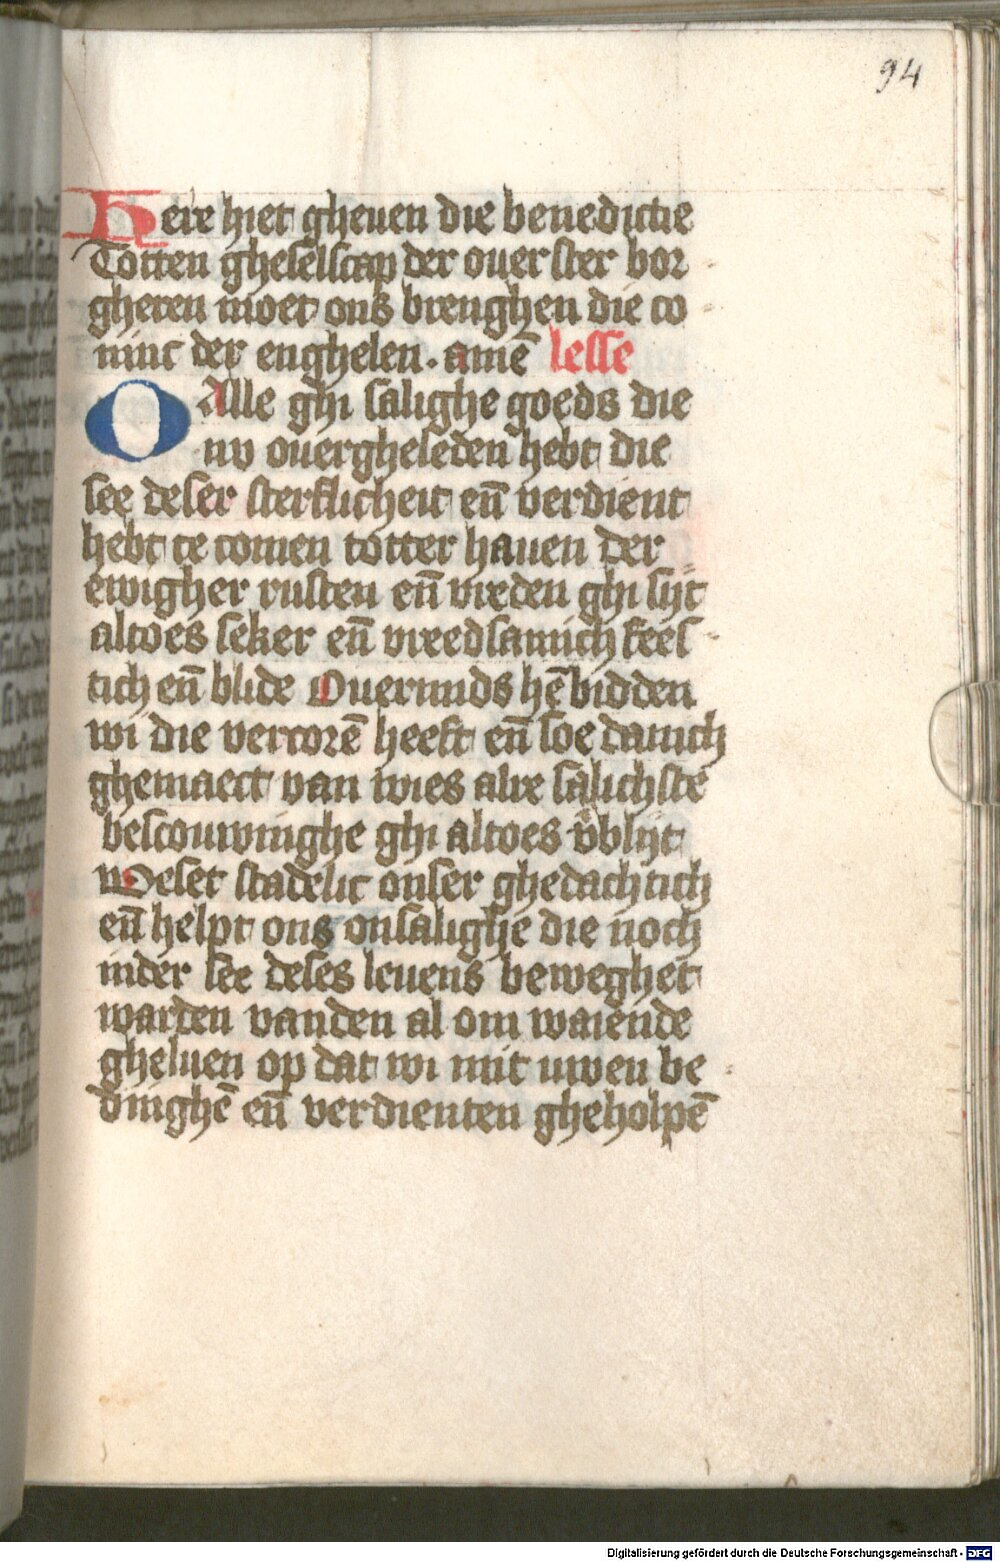 94
Here hiet gheuen die benedictie
Totten ghesellscap der ouer ster bor
gheren moet ons brenghen die co
ninc der enghelen. amē lesse
O Alle ghi salighe goeds die
nv ouergheleden hebt die
see deser sterflicheit en̄ verdient
hebt te comen totter hauen der
ewigher rusten en̄ vreden ghi sijt
altoes seker en̄ vreedsamich fees
tich en̄ blide Ouermids hē bidden
wi die vercorē heeft en̄ soe danich
ghemaect van wies alre salichste
bescouwinghe ghi altoes v̄blijt
Weset stadelic onser ghedachtich
en̄ helpt ons onsalighe die noch
inder see deses leuens beweghet
warden vanden al om waiende
gheluen op dat wi mit uwen be
dinghē en̄ verdienten gheholpē
Digitalisierung gefördert durch die Deutsche Forschungsgemeinschaft - DFG